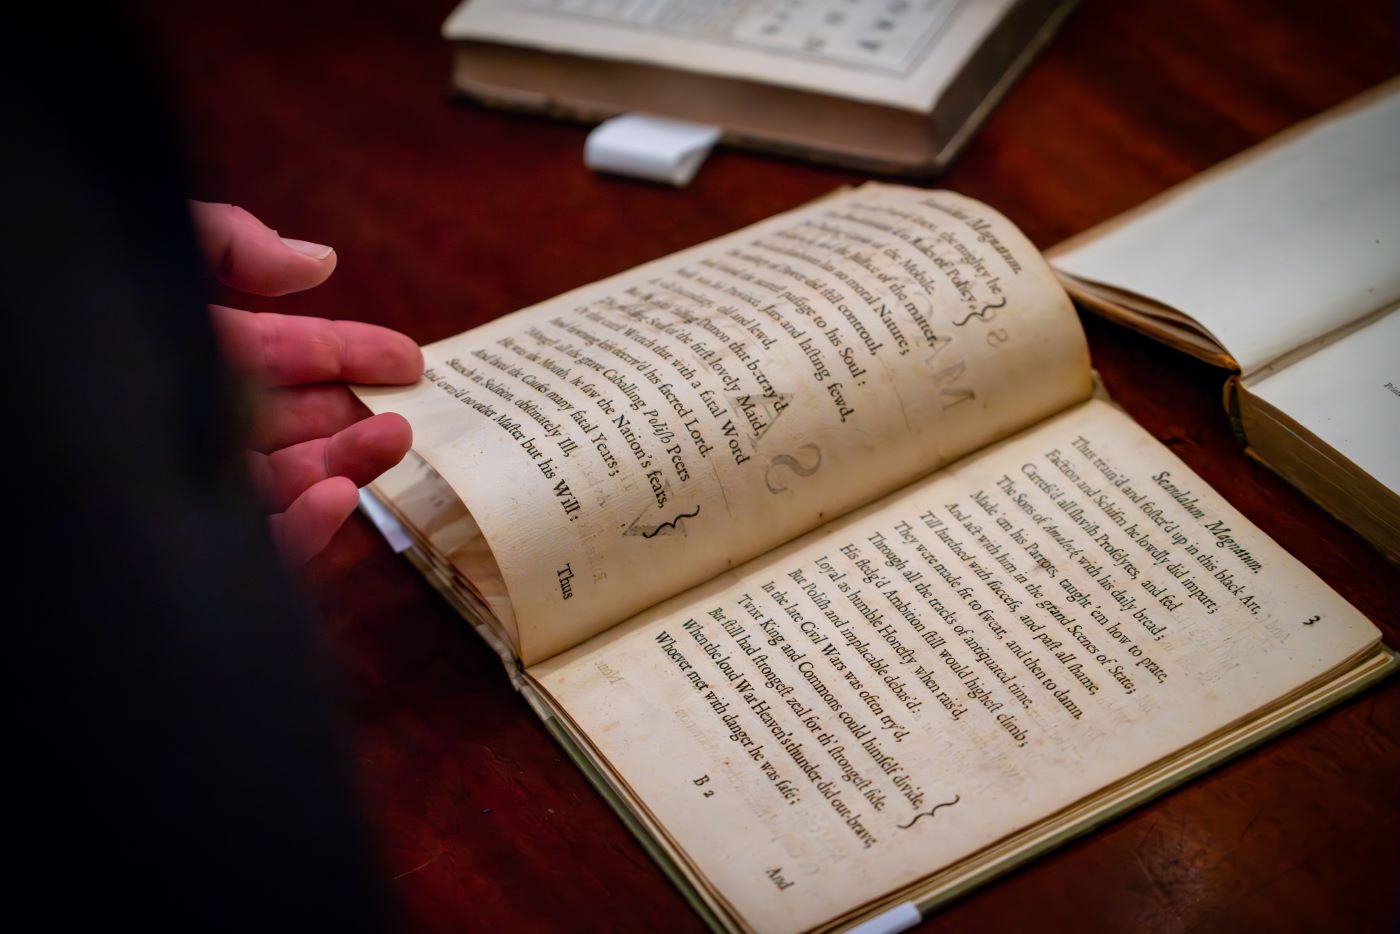 Scandalum Magnatum.
the mighty he
Rules of Policy,
of the Mobile,
and the Justice of the matter,
has no moral Nature;
of Power did still controul,
the nearest passage to his Soul:
Jars and lasting fewd,
old and lewd,
Demon that betray'd
of the first lovely Maid,
Or that curst Witch that with a fatal Word
his sacred Lord.
'Mongst all the grave Caballing Poliſh Peers
He was the Mouth, he ſaw the Nation's fears,
And lov'd the Cauſe many fatal Years;
Stauch in Sedition, obſtinately Ill,
own'd no other Maſter but his Will:
Thus
3
Scandalum Magnatum.
Thus train'd and foſter'd up in this black Art,
Faction and Schiſm he lowdly did impart;
Careſs'd all ſlaviſh Proſelytes, and fed
The Sons of Amaleck with his daily bread;
Made 'em his Parrots, taught 'em how to prate,
And act with him in the grand Scenes of State;
Till hardned with ſucceſs, and paſt all ſhame,
They were made fit to ſwear, and then to damn.
Through all the tracks of antiquated time,
His fledg'd Ambition ſtill would higheſt climb;
Loyal as humble Honeſty when rais'd,
But Poliſh and implacable debas'd:
In the late Civil Wars was often try'd,
Twixt King and Commons could himſelf divide,
But ſtill had ſtrongeſt zeal for th' ſtrongeſt ſide.
When the loud War Heaven's thunder did out-brave,
Whoever met with danger he was ſafe;
B 2
And